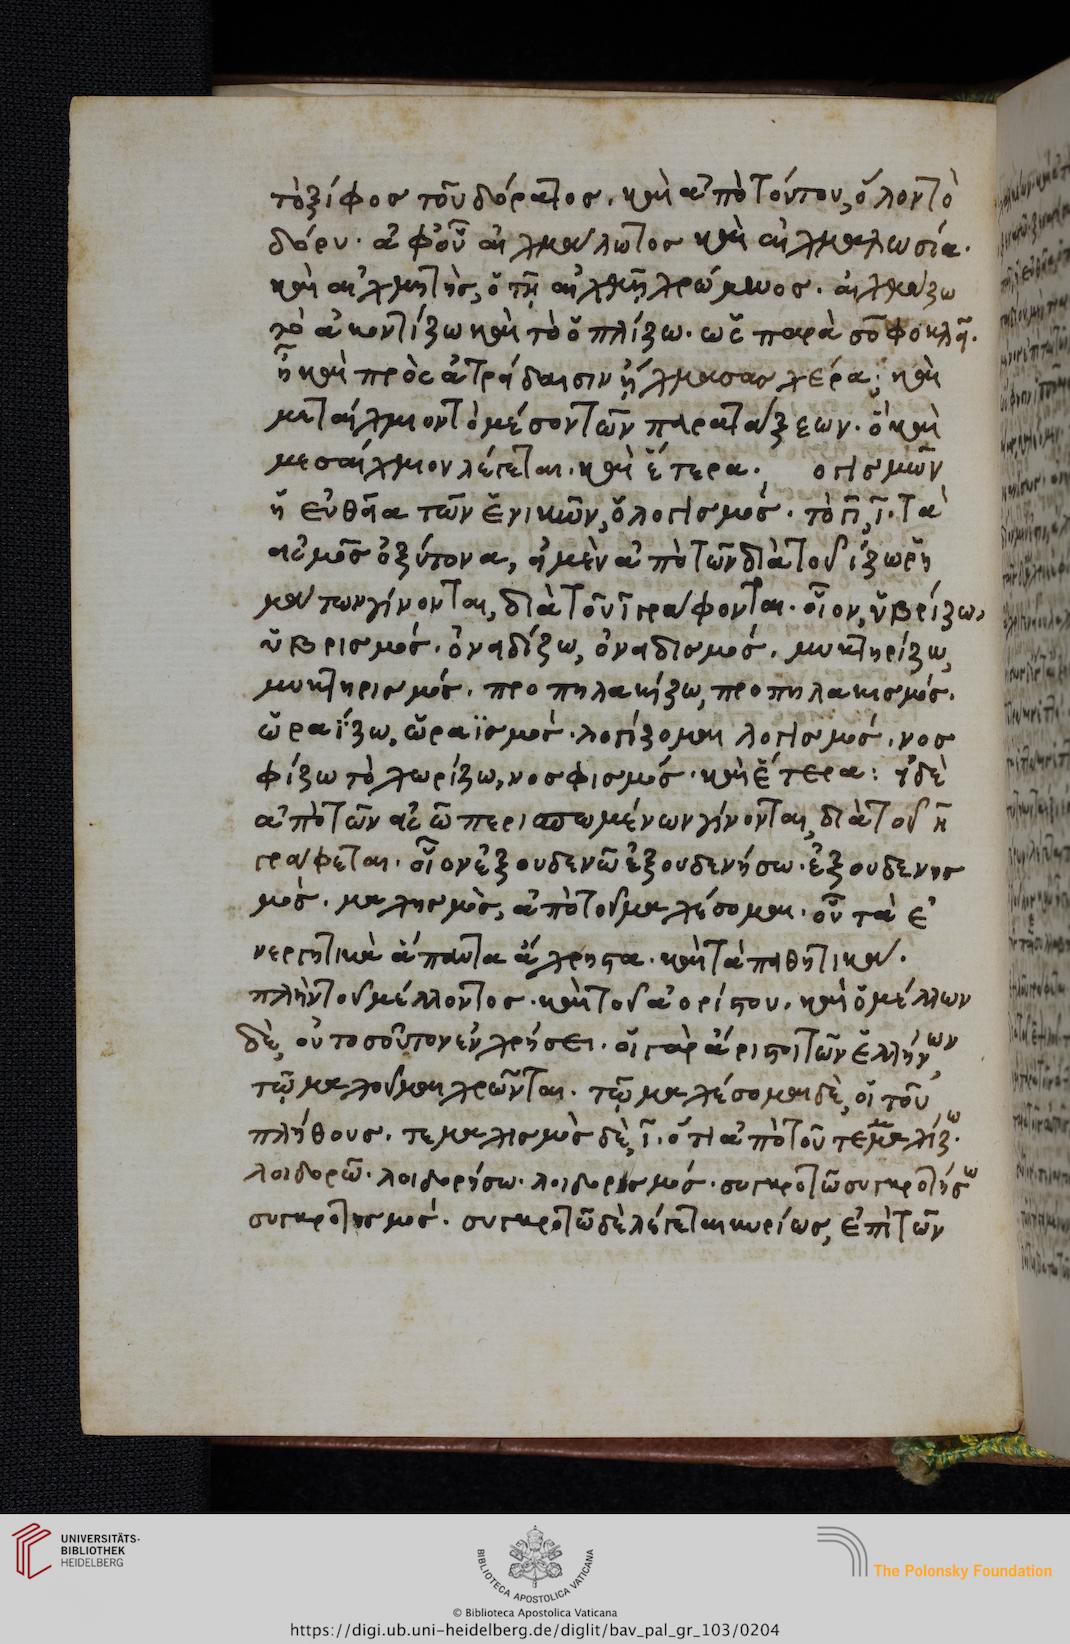 τὸ ξίφος τοῦ δόρατος. καὶ ἀπὸ τούτου, ὅλον τὸ
δόρυ. ἀφ' οὗ αἰχμάλωτος καὶ αἰχμαλωσία.
καὶ αἰχμητὴς, ὁ τῇ αἰχμῇ χρώμενος. αἰχμάζω
τὸ ἀκοντίζω καὶ τὸ ὁπλίζω. ὡς παρὰ σοφοκλεῖ.
ἦ καὶ πρὸς ἀτρείδαισιν ᾔχμασας χέρα; καὶ
μεταίχμιον τὸ μέσον τῶν παρατάξεων. ὃ καὶ
μεσαίχμιον λέγεται. καὶ ἕτερα. ογισμῶν
ἡ εὐθεῖα τῶν ἑνικῶν, ὁ λογισμός. τὸ γῑ, ῑ. τὰ
εἰς μος ὀξύτονα, εἰ μὲν ἀπὸ τῶν διὰ τοῦ ίζω ῥη
μάτων γίνονται, διὰ τοῦ ῑ γράφονται. οἷον, ὑβρίζω,
ὑβρισμός. ὀνειδίζω, ὀνειδισμός. μυκτηρίζω,
μυκτηρισμός. προπηλακίζω, προπηλακισμός.
ὡραΐζω, ὡραϊσμός. λογίζομαι λογισμός. νοσ
φίζω τὸ χωρίζω, νοσφισμός. καὶ ἕτερα: εἰ δὲ
ἀπὸ τῶν εἰς ῶ περισπωμένων γίνονται, διὰ τοῦ η
γράφεται. οἷον ἐξουδενῶ ἐξουδενήσω. ἐξουδενησ
μός. μαχησμὸς, ἀπὸ τοῦ μαχέσομαι. οὗ τὰ ἐ
νεργητικὰ ἅπαντα ἄχρηστα. καὶ τὰ παθητικά.
πλὴν τοῦ μέλλοντος. καὶ τοῦ ἀορίστου. καὶ ὁ μέλλων
δὲ, οὐ τοσοῦτον ἐν χρήσει. οἱ γὰρ ἄριστοι τῶν ἑλλήνων
τῷ μαχοῦμαι χρῶνται. τῷ μαχέσομαι δὲ, οἱ τοῦ
πλήθους. τεμαχισμὸς δὲ, ῑ. ὅτι ἀπὸ τοῦ τεμαχίζω.
λοιδορῶ. λοιδορήσω. λοιδορησμός. συγκροτῶ συγκροτήσω
συγκροτησμός. συγκροτῶ δὲ λέγεται κυρίως, ἐπὶ τῶν
UNIVERSITÄTS-
BIBLIOTHEK
HEIDELBERG
BIBLIOTECA APOSTOLICA VATICANA
The Polonsky Foundation
© Biblioteca Apostolica Vaticana
https://digi.ub.uni-heidelberg.de/diglit/bav_pal_gr_103/0204